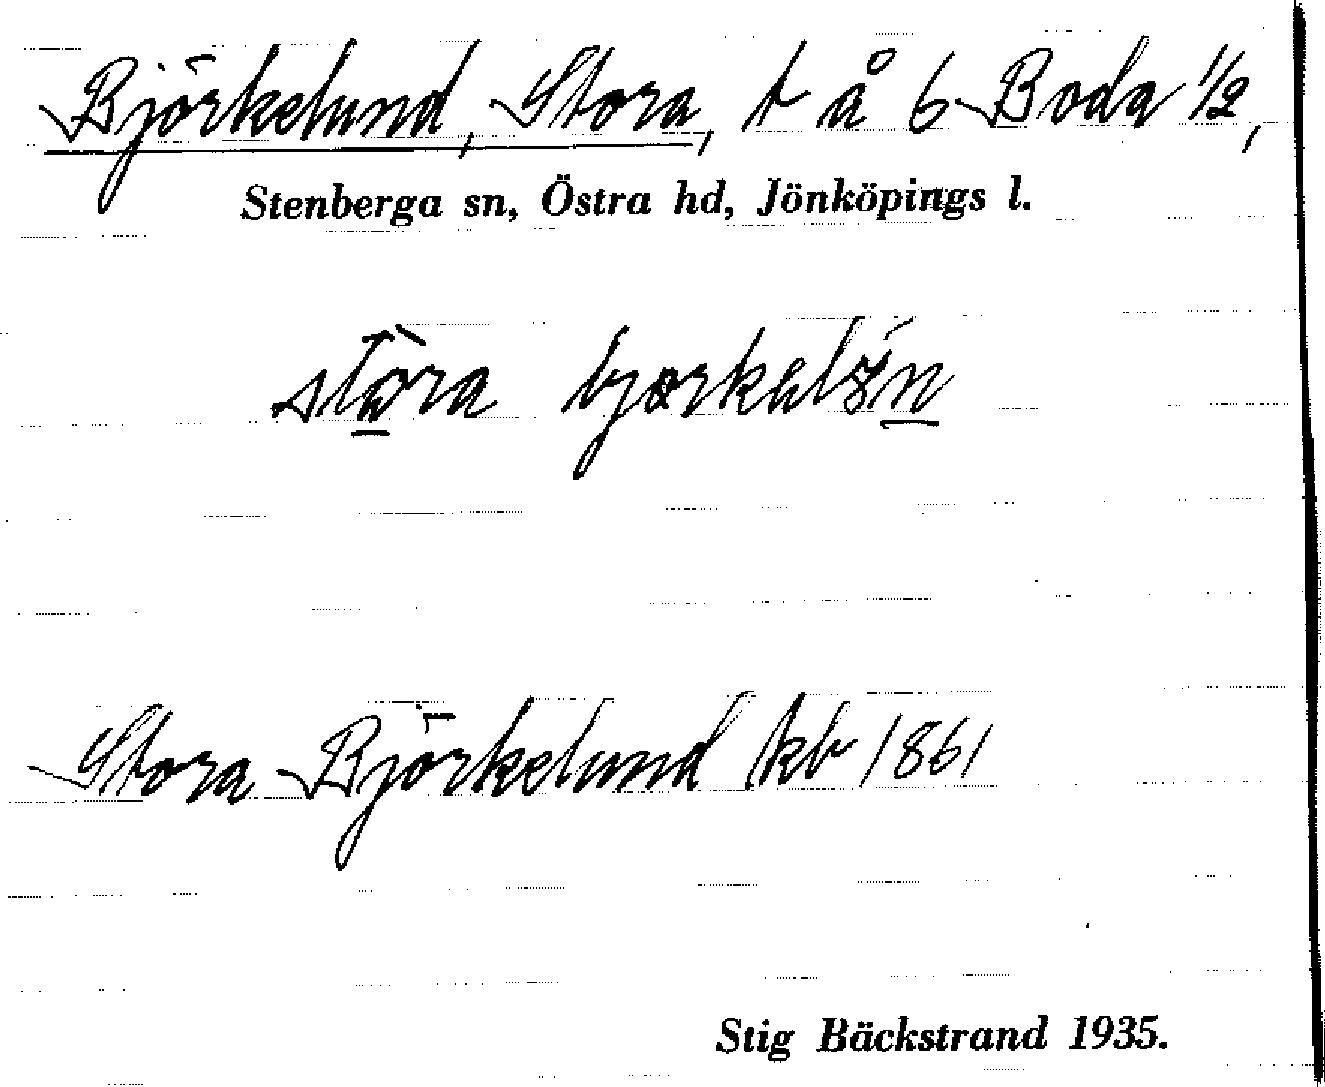 Björkelund, Stora, t å 6 Boda 1/2,
Stenberga sn, Östra hd, Jönköpings l.
stora
Stora Björkelund kb 1861
Stig Bäckstrand 1935.